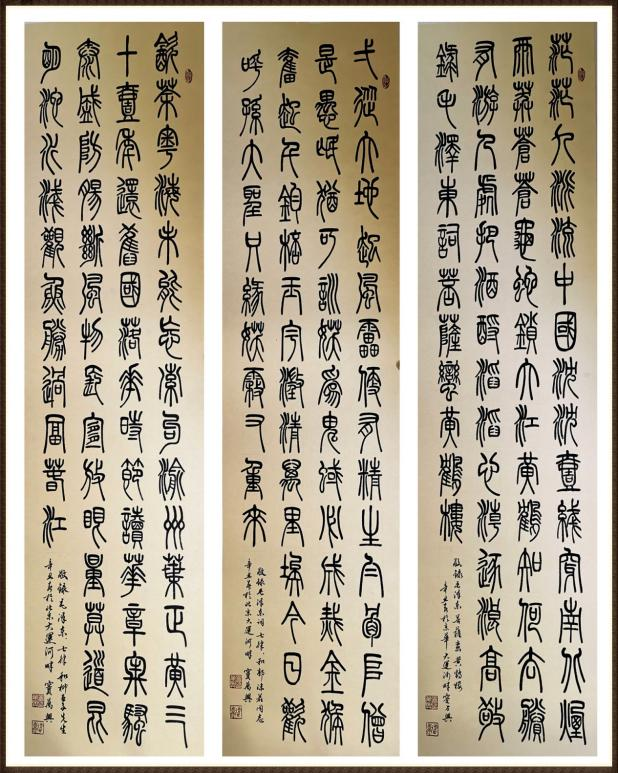 茫茫九派流中國沈沈壹綫穿南北煙
雨莽蒼蒼龜蛇鎖大江黃鶴知何去賸
有游人處把酒酹滔滔心潮逐浪高敬
錄毛澤東詞菩薩蠻黃鶴樓
敬錄毛澤東 菩薩蠻 黃鶴樓
辛丑春於京華大運河畔竇万興
弌從大地起風雷便有精生白骨堆僧
是愚氓猶可訓妖為鬼蜮必成災金猴
奮起千鈞棒玉宇澄清萬里埃今日歡
呼孫大聖只緣妖霧又重來
敬錄毛澤東詞 七律 和郭沫若同志
辛丑春於北京大運河畔 竇萬興
飲茶粵海未能忘索句渝州葉正黃三
十壹年還舊國落花時節讀華章牢騷
泰盛防腸斷風物長宜放眼量莫道昆
明池水淺觀魚勝過富春江
敬錄毛澤東 七律 和柳亞子先生
辛丑春於北京大運河畔 竇萬興